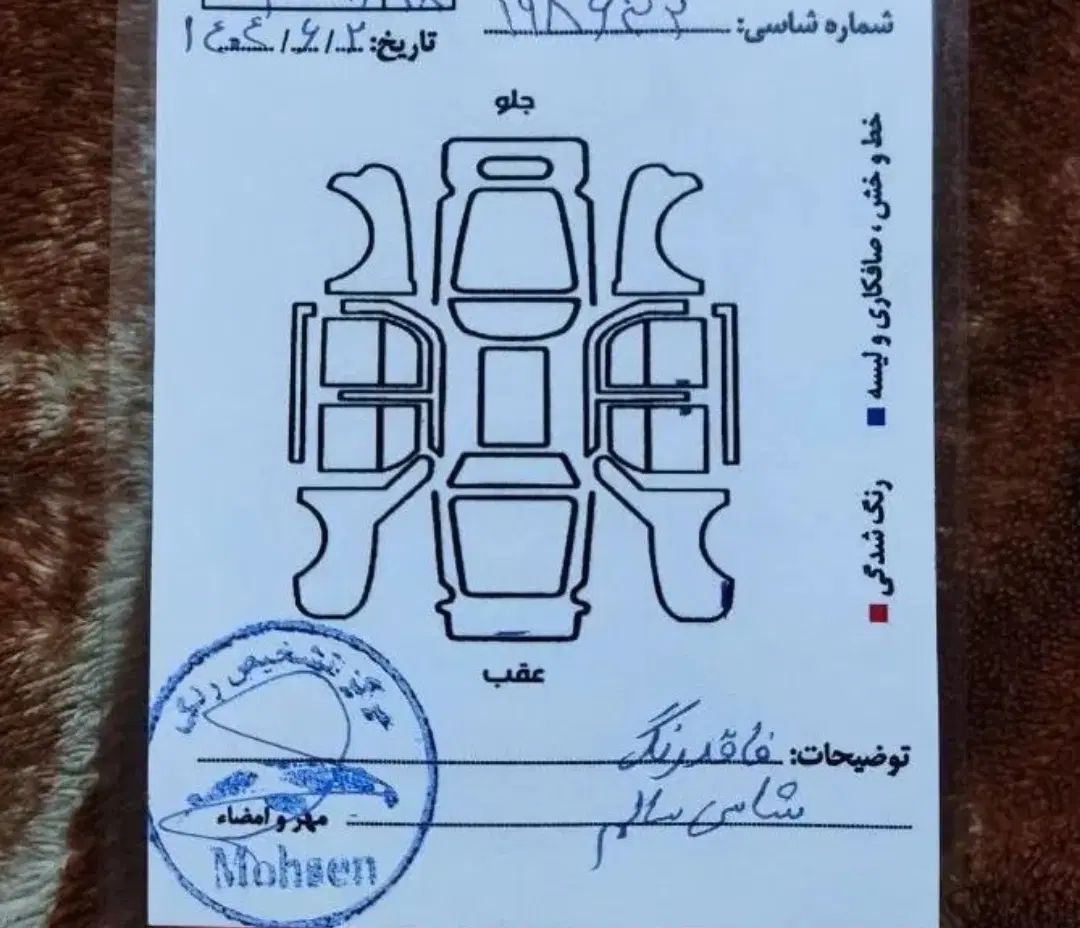 شماره شاسی:
تاریخ: ۱۴۰۴/۶/۲
جلو
خط و خش ، صافکاری و لیسه
رنگ شدگی
عقب
مرکز تشخیص رنگ
توضیحات: فاقد رنگ
شاسی سالم
مهر و امضاء
Mohsen